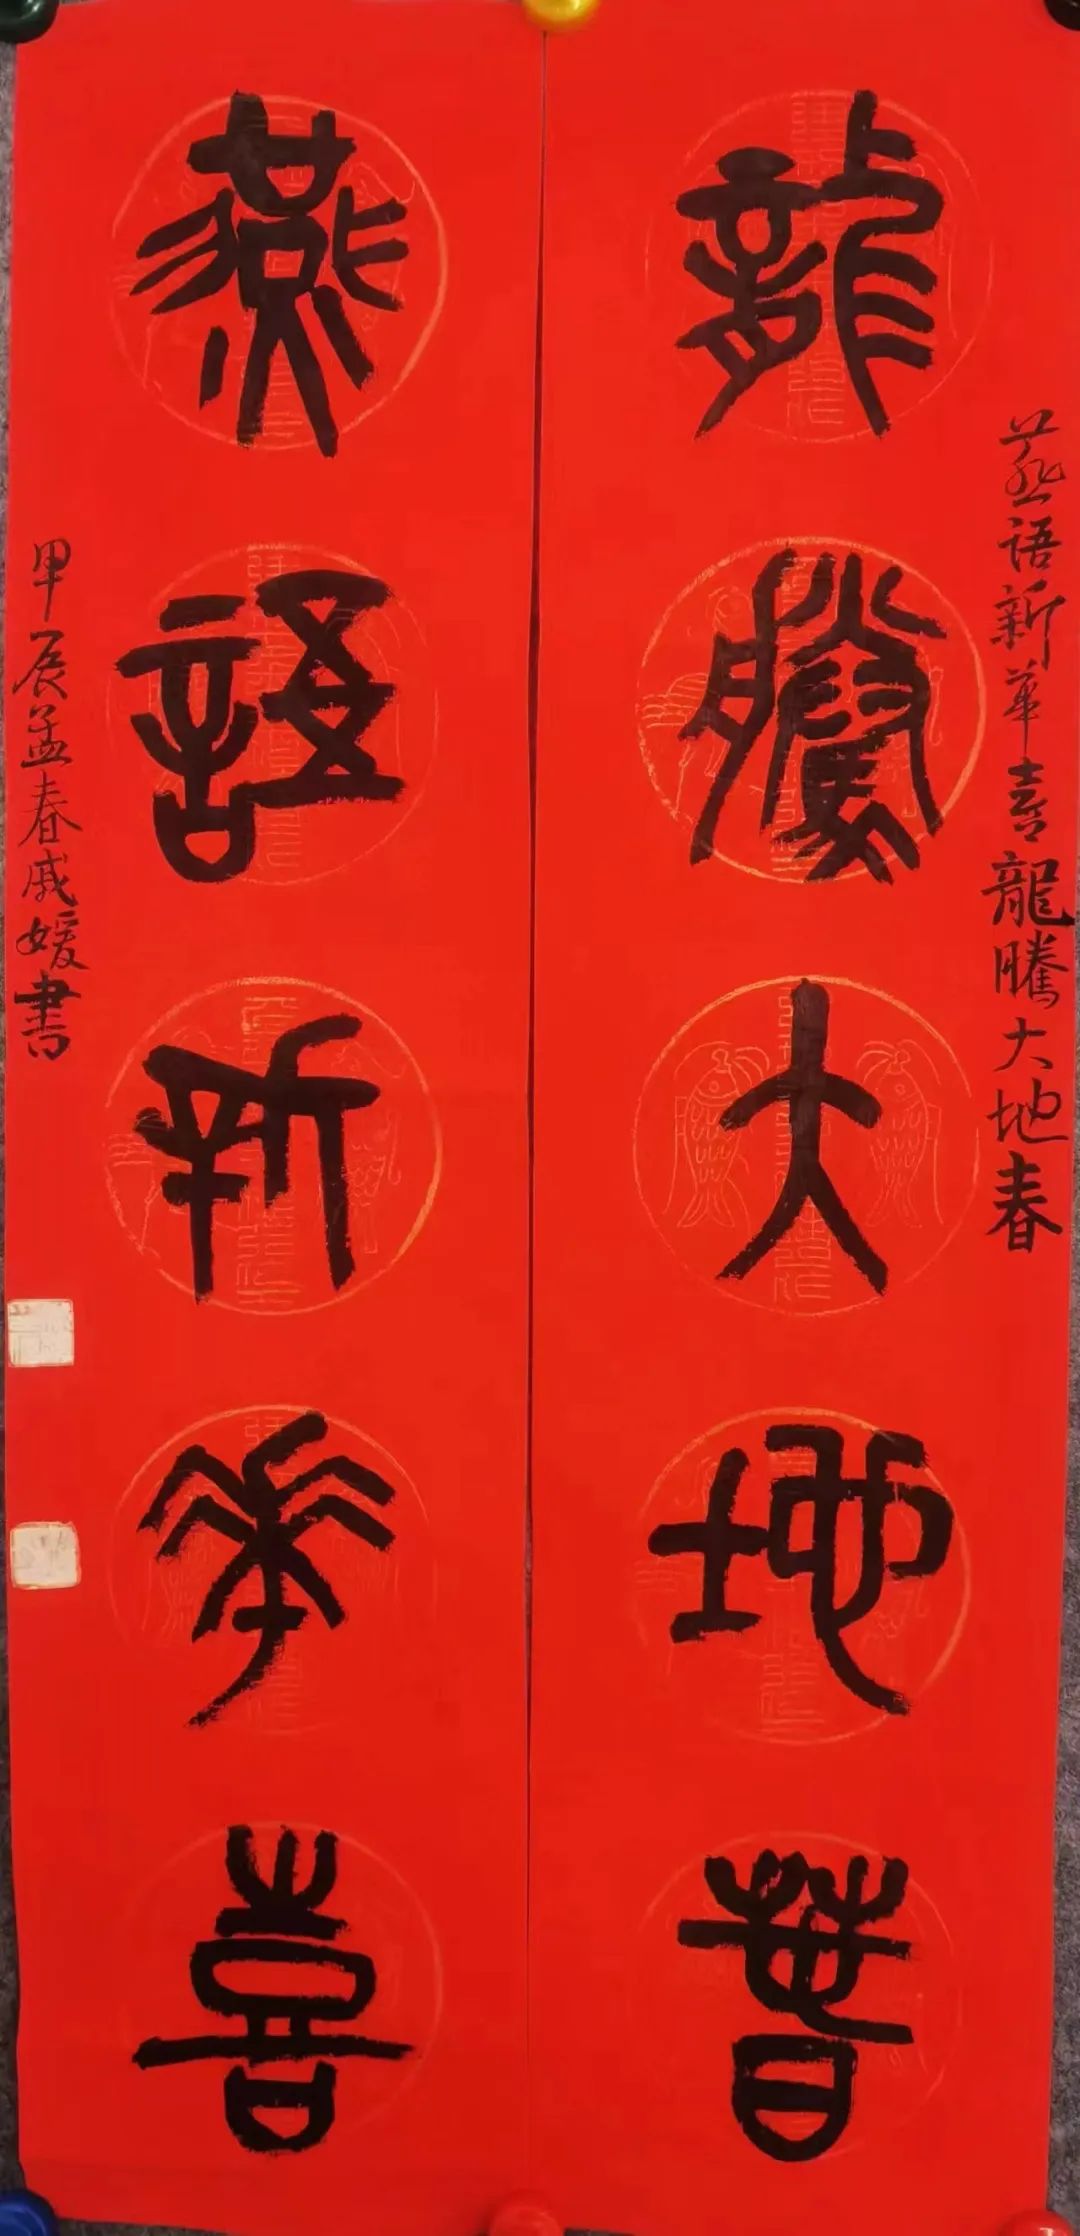 龍騰大地春
燕語新華喜
燕語新華喜龍騰大地春
甲辰孟春戚媛書